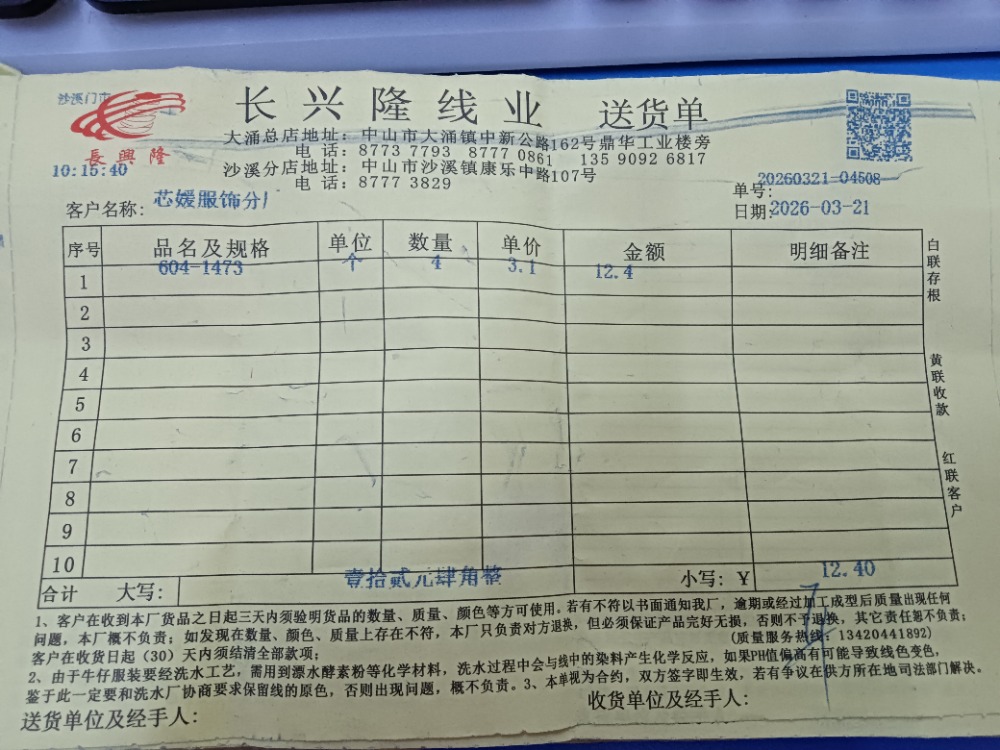 沙溪门市
長興隆
10:15:40
长兴隆线业 送货单
大涌总店地址：中山市大涌镇中新公路162号鼎华工业楼旁
电话：8773 7793 8777 0861 135 9092 6817
沙溪分店地址：中山市沙溪镇康乐中路107号
电话：8777 3829
单号:20260321-04508
客户名称: 芯媛服饰分厂
日期:2026-03-21
序号 品名及规格 单位 数量 单价 金额 明细备注
1 604-1473 个 4 3.1 12.4
2
3
4
5
6
7
8
9
10
合计 大写: 壹拾贰元肆角整 小写: ¥ 12.40
白联存根
黄联收款
红联客户
1、客户在收到本厂货品之日起三天内须验明货品的数量、质量、颜色等方可使用。若有不符以书面通知我厂，逾期或经过加工成型后质量出现任何
问题，本厂概不负责；如发现在数量、颜色、质量上存在不符，本厂只负责对方退换，但必须保证产品完好无损，否则不予退换，其它责任恕不负责；
客户在收货日起（30）天内须结清全部款项；
(质量服务热线：13420441892)
2、由于牛仔服装要经洗水工艺，需用到漂水酵素粉等化学材料，洗水过程中会与线中的染料产生化学反应，如果PH值偏高有可能导致线色变色，
鉴于此一定要和洗水厂协商要求保留线的原色，否则出现问题，概不负责。3、本单视为合约，双方签字即生效，若有争议在供方所在地司法部门解决。
送货单位及经手人:
收货单位及经手人: